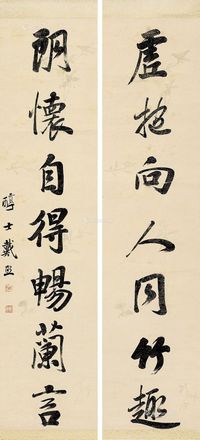 虚抱向人同竹趣
朗懷自得暢蘭言
醇士戴熙